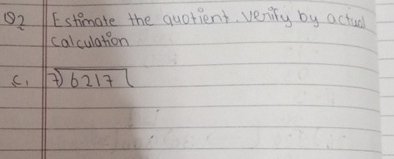 Q2 Estimate the quotient. Verify by actual
calculation
c, 7)6217(